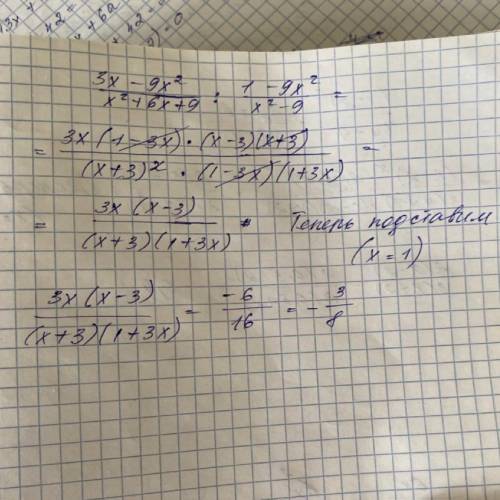 13x +
x² =
x + 6a
+ 42 = 0
) = 0
(3x - 9x²)/(x² + 6x + 9) : (1 - 9x²)/(x² - 9) =
= (3x(1 - 3x) · (x - 3)(x + 3))/((x + 3)² · (1 - 3x)(1 + 3x)) =
= (3x(x - 3))/((x + 3)(1 + 3x)) Теперь подставим
(x = 1)
(3x(x - 3))/((x + 3)(1 + 3x)) = -6/16 = - 3/8